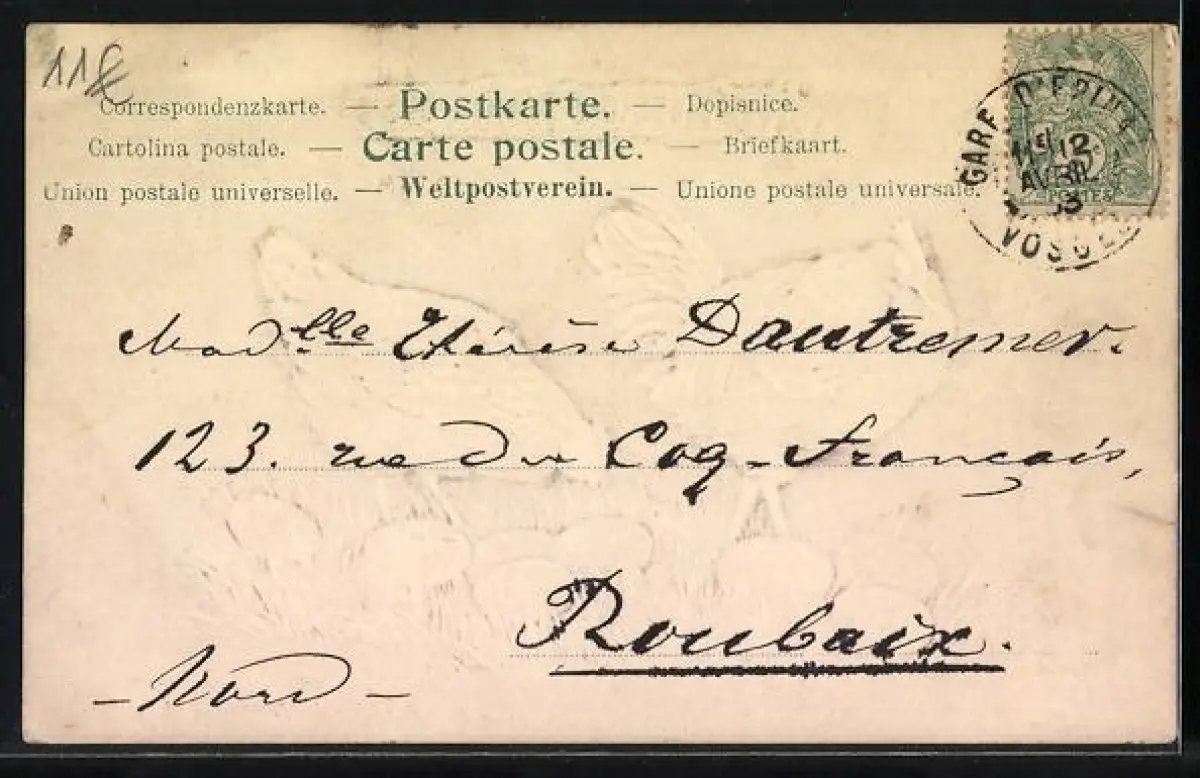 Correspondenzkarte. — Postkarte. — Dopisnice.
Cartolina postale. — Carte postale. — Briefkaart.
Union postale universelle. — Weltpostverein. — Unione postale universale.
GARE D'EPIN
12
AVRIL
03
VOSGES
POSTES
Madelle Thérèse Dautremer.
123. rue du Coq-Français,
Roubaix.
- Nord -